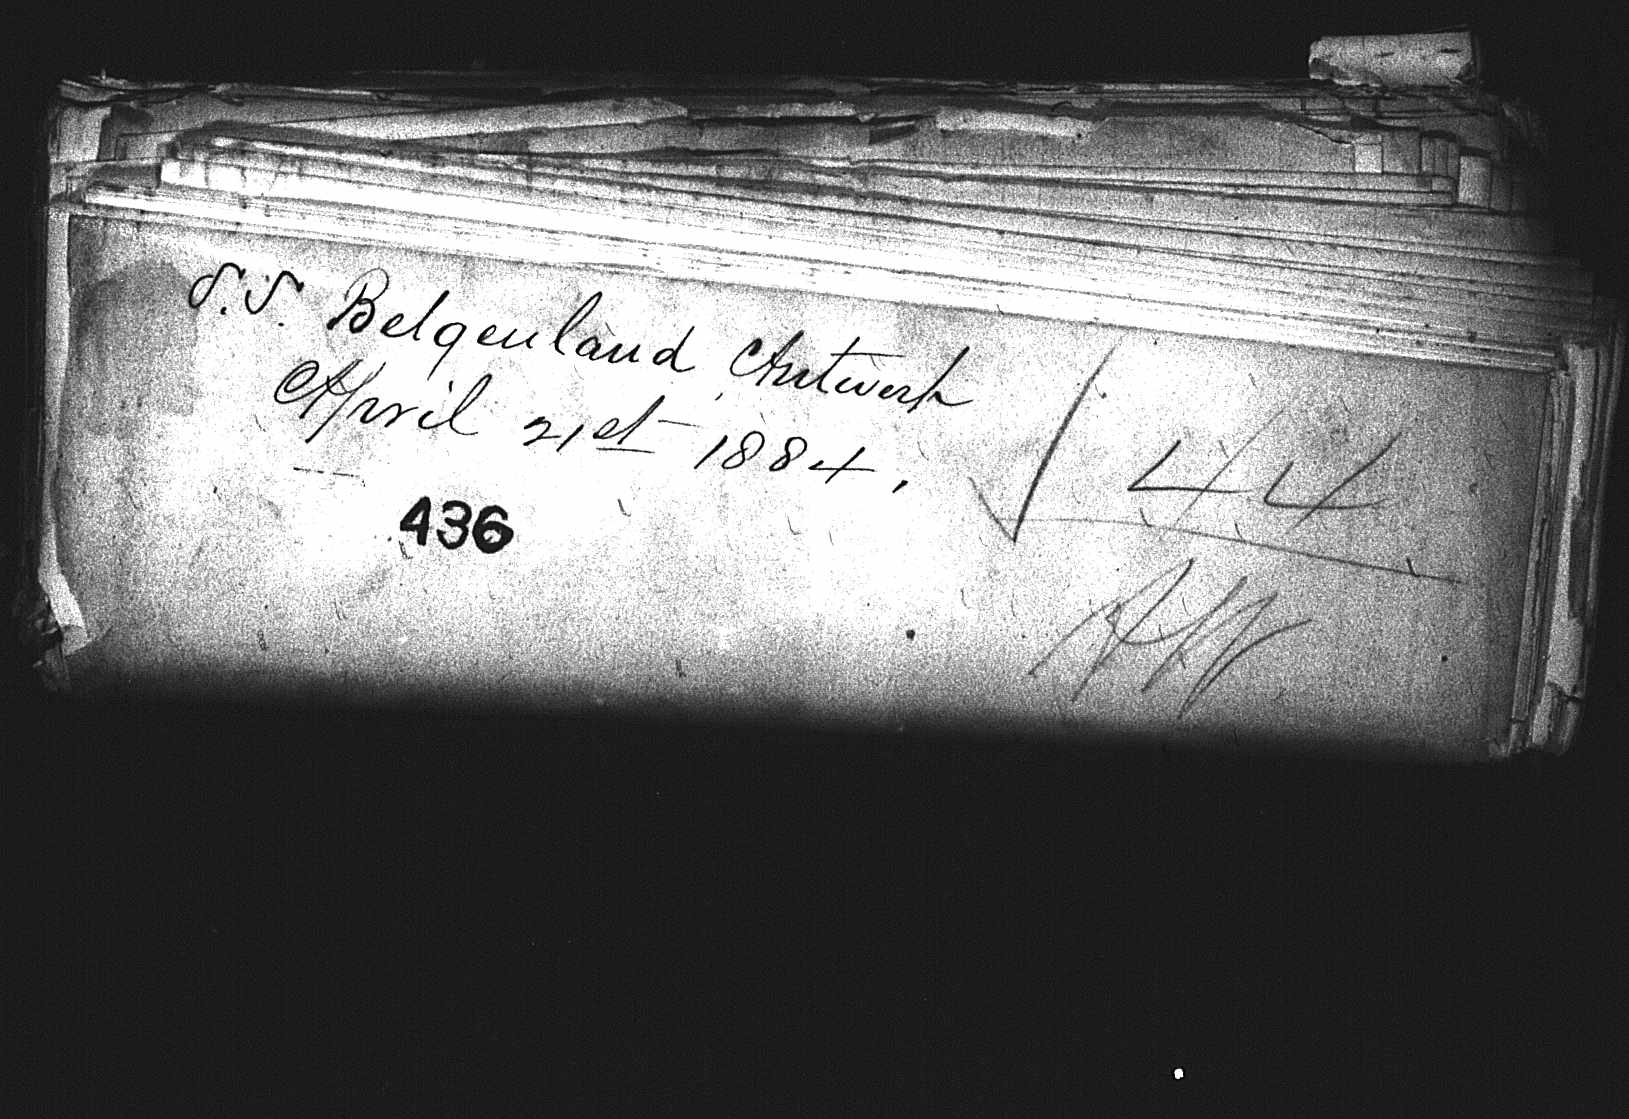 S.S. Belgenland Antwerp
April 21st 1884.
436
44